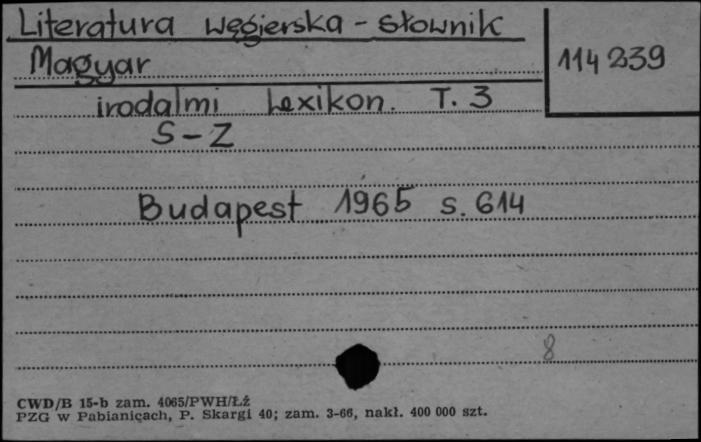 Literatura węgierska - słownik
114 239
Magyar
irodalmi Lexikon. T. 3
S - Z
Budapest 1965 s. 614
8
CWD/B 15-b zam. 4065/PWH/Łź
PZG w Pabianicach, P. Skargi 40; zam. 3-66, nakł. 400 000 szt.